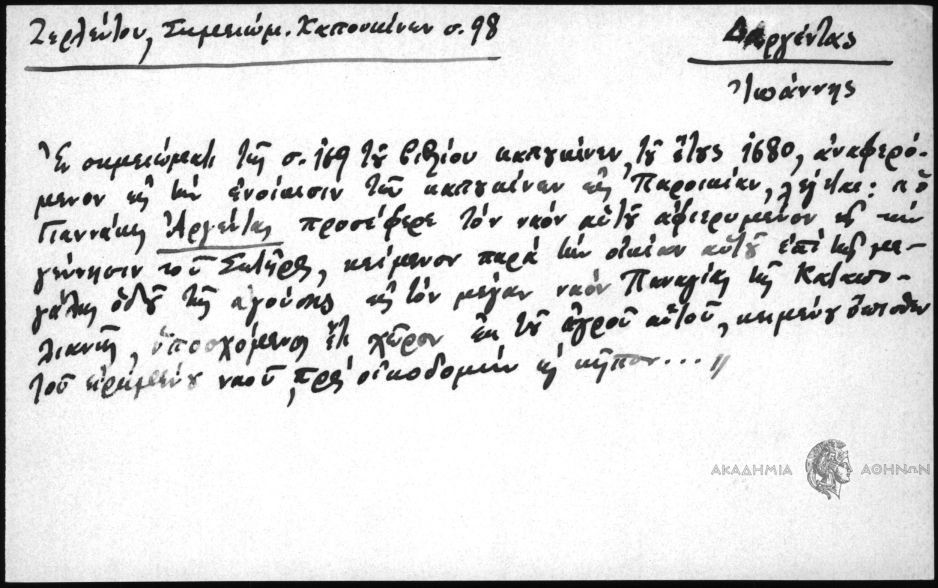 Ζερλέντου, Σημειώμ. Καπουκίνων σ. 98
Δαργέντας
Ἰωάννης
Ἐν σημειώματι τῆς σ. 169 τοῦ βιβλίου καπουκίνων, τοῦ ἔτους 1680, ἀναφερό-
μενον εἰς τὴν ἐνοίκισιν τῶν καπουκίνων εἰς Παροικίαν, λέγεται: "Ὁ
Γιαννάκης Ἀργέντας προσέφερε τὸν ναὸν αὐτοῦ ἀφιερωμένον εἰς τὴν
γέννησιν τοῦ Σωτῆρος, κείμενον παρὰ τὴν οἰκίαν αὐτοῦ ἐπὶ τῆς με-
γάλης ὁδοῦ τῆς ἀγούσης εἰς τὸν μέγαν ναὸν Παναγίας τῆς Καταπο-
λιανῆς, ὑποσχόμενος χῶρον ἐκ τοῦ ἀγροῦ αὐτοῦ, κειμένου ὄπισθεν
τοῦ εἰρημένου ναοῦ, πρὸς οἰκοδομὴν κῆπον...."
ΑΚΑΔΗΜΙΑ ΑΘΗΝΩΝ